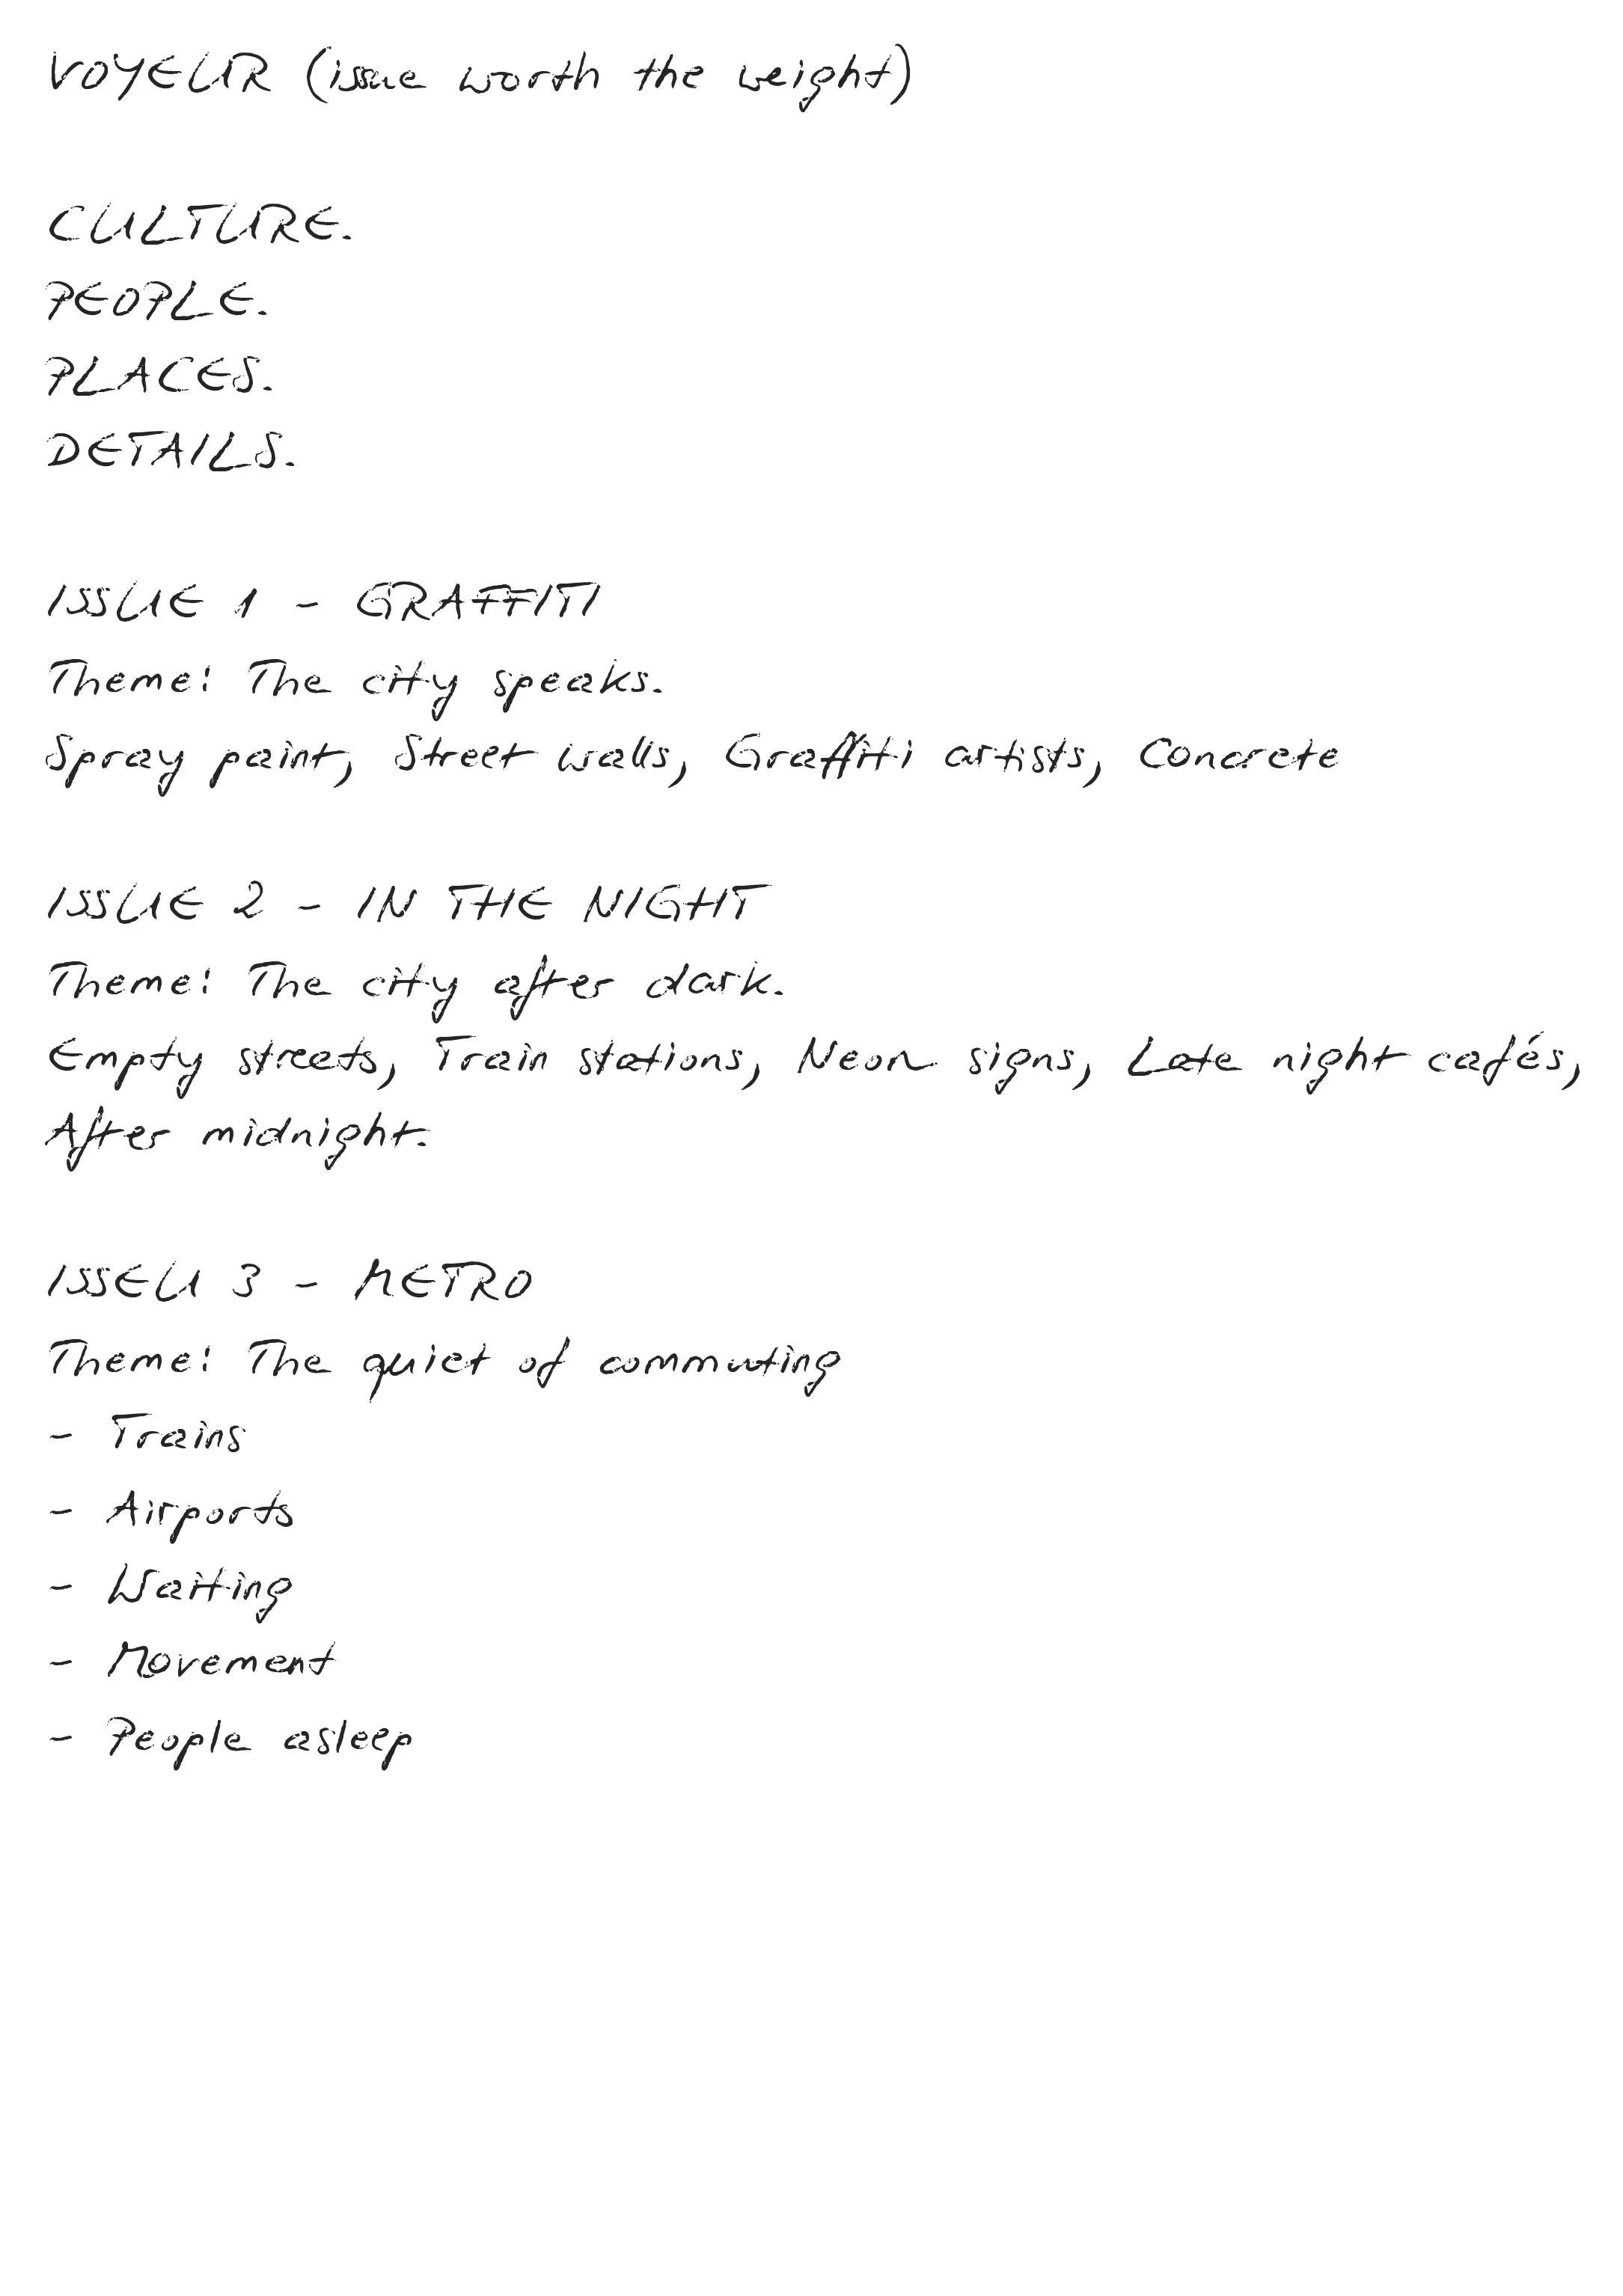 VOYEUR (issue worth the weight)
CULTURE.
PEOPLE.
PLACES.
DETAILS.
ISSUE 1 - GRAFFITI
Theme: The city speaks.
Spray paint, Street walls, Graffiti artists, Concrete
ISSUE 2 - IN THE NIGHT
Theme: The city after dark.
Empty streets, Train stations, Neon signs, Late night cafés,
After midnight.
ISSEU 3 - METRO
Theme: The quiet of commuting
- Trains
- Airports
- Waiting
- Movement
- People asleep